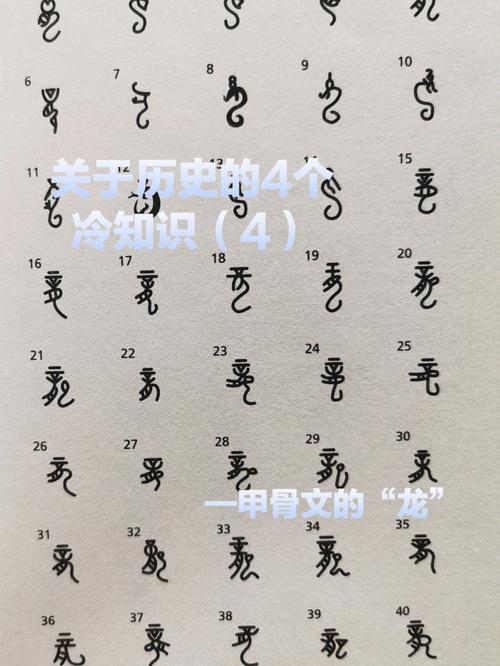 6 7 8 9 10
关于历史的4个
冷知识（4）
11 12 13 15
16 17 18 19 20
21 22 23 24 25
26 27 28 29 30
—甲骨文的“龙”
31 32 33 34 35
36 37 38 39 40